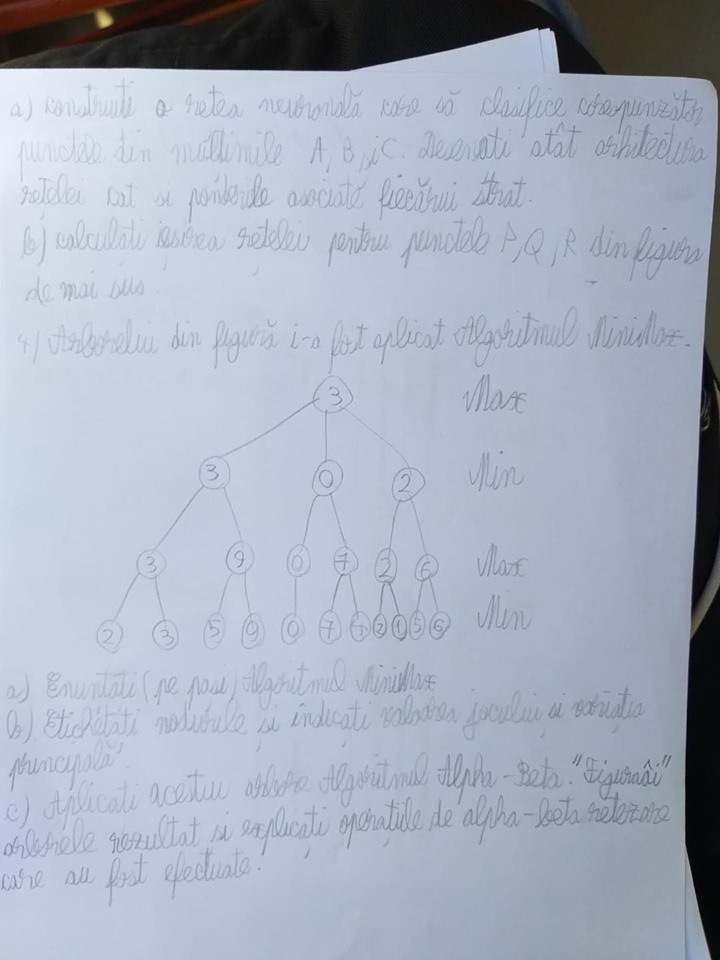 a) Construiti o retea neuronală care să clasifice corespunzător
punctele din multimile A, B, și C. Desenati atât arhitectura
retelei cat si ponderile asociate fiecărui strat.
b) calculati iesirea retelei pentru punctele P, Q, R din figura
de mai sus.
4) Arborelui din figură i-a fost aplicat Algoritmul MiniMax.
3 Max
3 0 2 Min
3 9 0 7 2 6 Max
2 3 5 9 0 7 2 1 5 6 Min
a) Enuntati (pe pasi) Algoritmul MiniMax
b) Etichetati nodurile si indicati valoarea jocului si variatia
principală".
c) Aplicati acestui arbore Algoritmul Alpha-Beta. "Figuraâi"
arborele rezultat si explicati operatiile de alpha-beta retezare
care au fost efectuate.